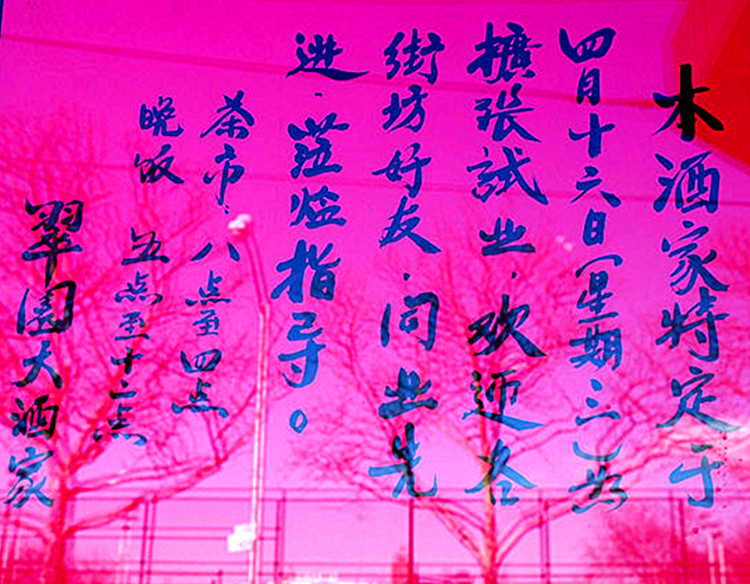 本酒家特定于
四月十六日(星期三)為
擴張試业.欢迎各
街坊好友.同业先
进.蒞临指导。
茶市:八点至四点
晚饭 五点至十二点
翠園大酒家